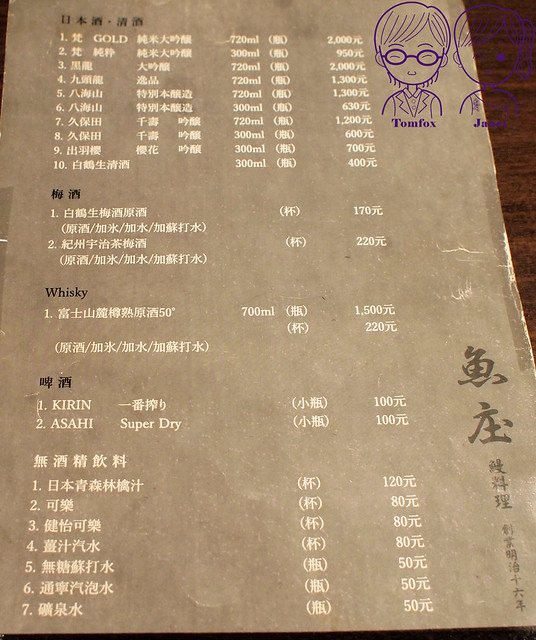 日本酒·清酒
1. 梵 GOLD 純米大吟釀 720ml (瓶) 2,000元
2. 梵 純粋 純米大吟釀 300ml (瓶) 950元
3. 黑龍 大吟釀 720ml (瓶) 2,000元
4. 九頭龍 逸品 720ml (瓶) 1,300元
5. 八海山 特別本釀造 720ml (瓶) 1,300元
6. 八海山 特別本釀造 300ml (瓶) 630元
7. 久保田 千壽 吟釀 720ml (瓶) 1,200元
8. 久保田 千壽 吟釀 300ml (瓶) 600元
9. 出羽櫻 櫻花 吟釀 300ml (瓶) 700元
10. 白鶴生清酒 300ml (瓶) 400元
梅酒
1. 白鶴生梅酒原酒 (杯) 170元
(原酒/加氷/加水/加蘇打水)
2. 紀州宇治茶梅酒 (杯) 220元
(原酒/加氷/加水/加蘇打水)
Whisky
1. 富士山麓樽熟原酒50° 700ml (瓶) 1,500元
(杯) 220元
(原酒/加氷/加水/加蘇打水)
啤酒
1. KIRIN 一番搾り (小瓶) 100元
2. ASAHI Super Dry (小瓶) 100元
無酒精飲料
1. 日本青森林檎汁 (杯) 120元
2. 可樂 (杯) 80元
3. 健怡可樂 (杯) 80元
4. 薑汁汽水 (杯) 80元
5. 無糖蘇打水 (瓶) 50元
6. 通寧汽泡水 (瓶) 50元
7. 礦泉水 (瓶) 50元
魚庄
鰻料理
創業明治十六年
Tomfox
Janet